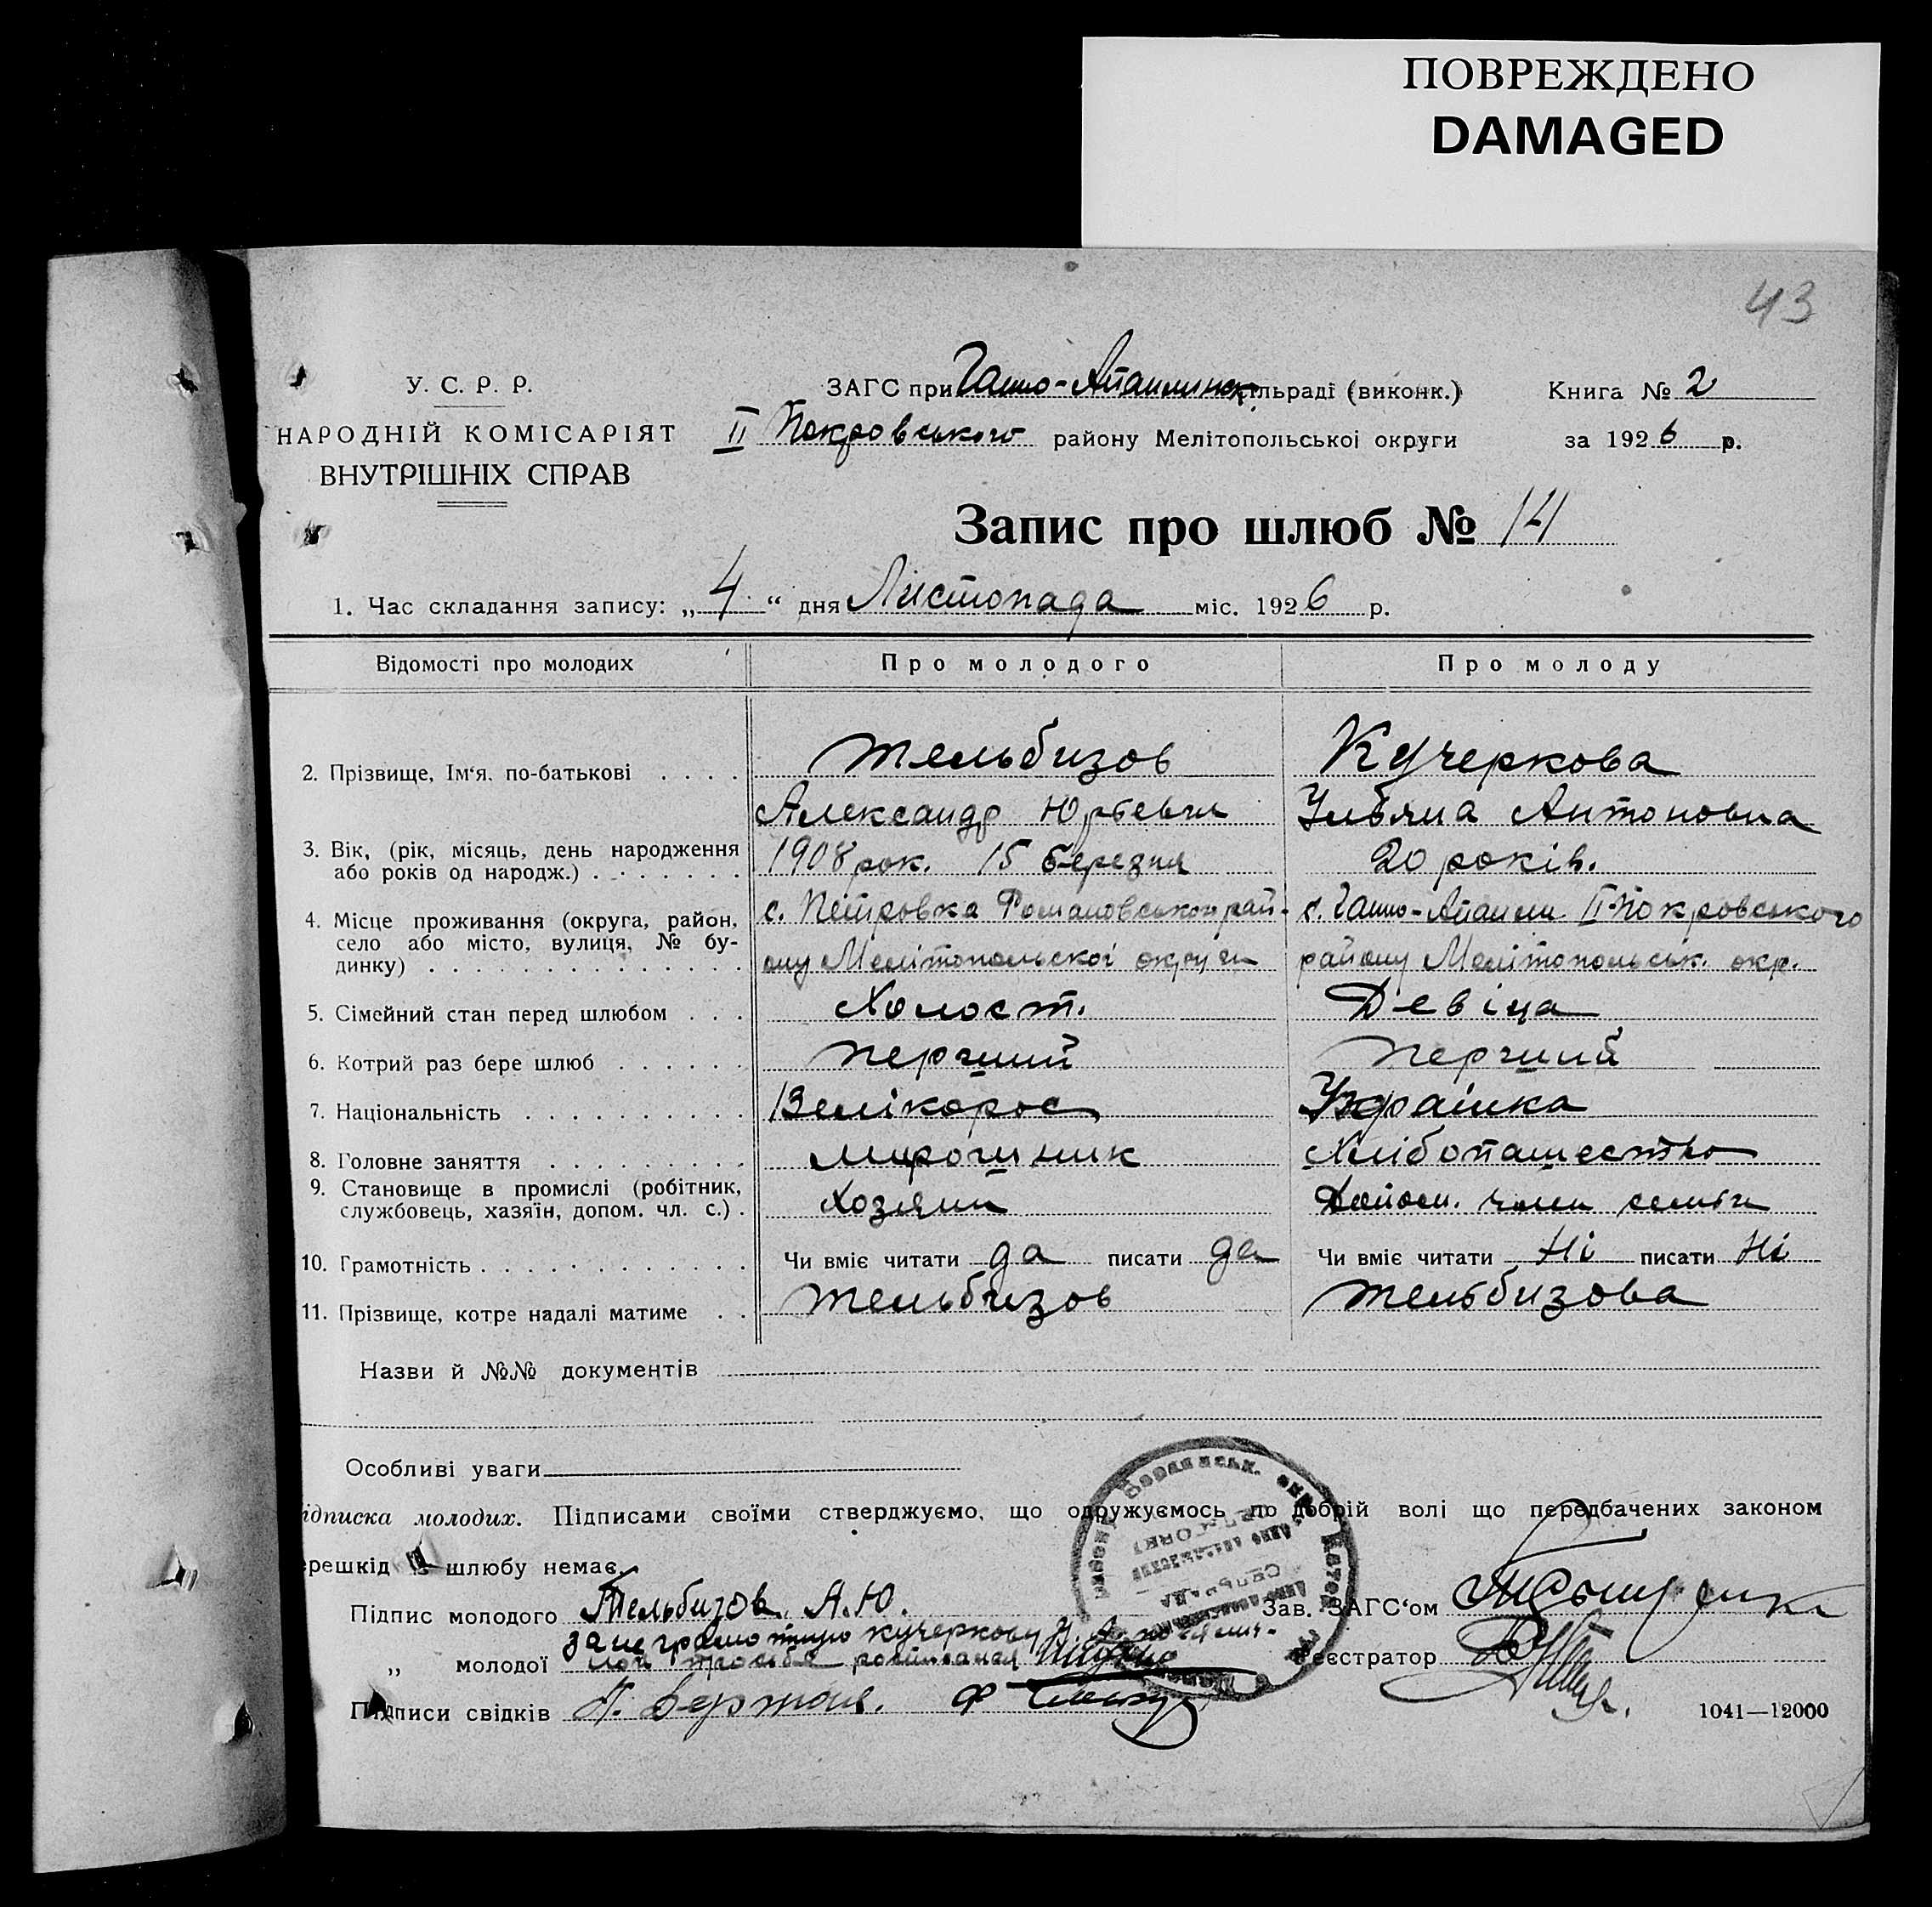 ПОВРЕЖДЕНО
DAMAGED
43
У. С. Р. Р.
НАРОДНІЙ КОМІСАРІЯТ
ВНУТРІШНІХ СПРАВ
ЗАГС при Ганно- сільраді (виконк.)
II Покровського району Мелітопольської округи
Книга № 2
за 1926 р.
Запис про шлюб № 14
1. Час складання запису: „4“ дня Листопада міс. 1926 р.
Відомості про молодих Про молодого Про молоду
2. Прізвище, Ім'я, по-батькові . . . . Тельбизов Кучеркова
Александр Юрьевич Ульяна Антоновна
3. Вік, (рік, місяць, день народження
або років од народж.) . . . . . . . 1908 рок. 15 березня 20 років.
4. Місце проживання (округа, район,
село або місто, вулиця, № бу-
динку) . . . . . . . . . . . . . .
с. Петровка Романовського рай-
ону Мелітопольскоі округи
с. Ганно- II-Покровського
району Мелітопольськ. окр.
5. Сімейний стан перед шлюбом . . . Холост. Девіца
6. Котрий раз бере шлюб . . . . . . перший перший
7. Національність . . . . . . . . . . Велікорос Украінка
8. Головне заняття . . . . . . . . . мирошник Хлібопашество
9. Становище в промислі (робітник,
службовець, хазяїн, допом. чл. с.) . Хозяин член семьи
10. Грамотність . . . . . . . . . . . . Чи вміє читати да писати да Чи вміє читати Ні писати Ні
11. Прізвище, котре надалі матиме . . Тельбизов Тельбизова
Назви й №№ документів
Особливі уваги
ідписка молодих. Підписами своїми стверджуємо, що одружуємось по добрій волі що передбачених законом
ерешкід шлюбу немає.
Підпис молодого Тельбизов А.Ю. Зав. ЗАГС'ом
за неграмотную Кучеркову У. А. по
„ молодої Реєстратор
Підписи свідків
1041—12000